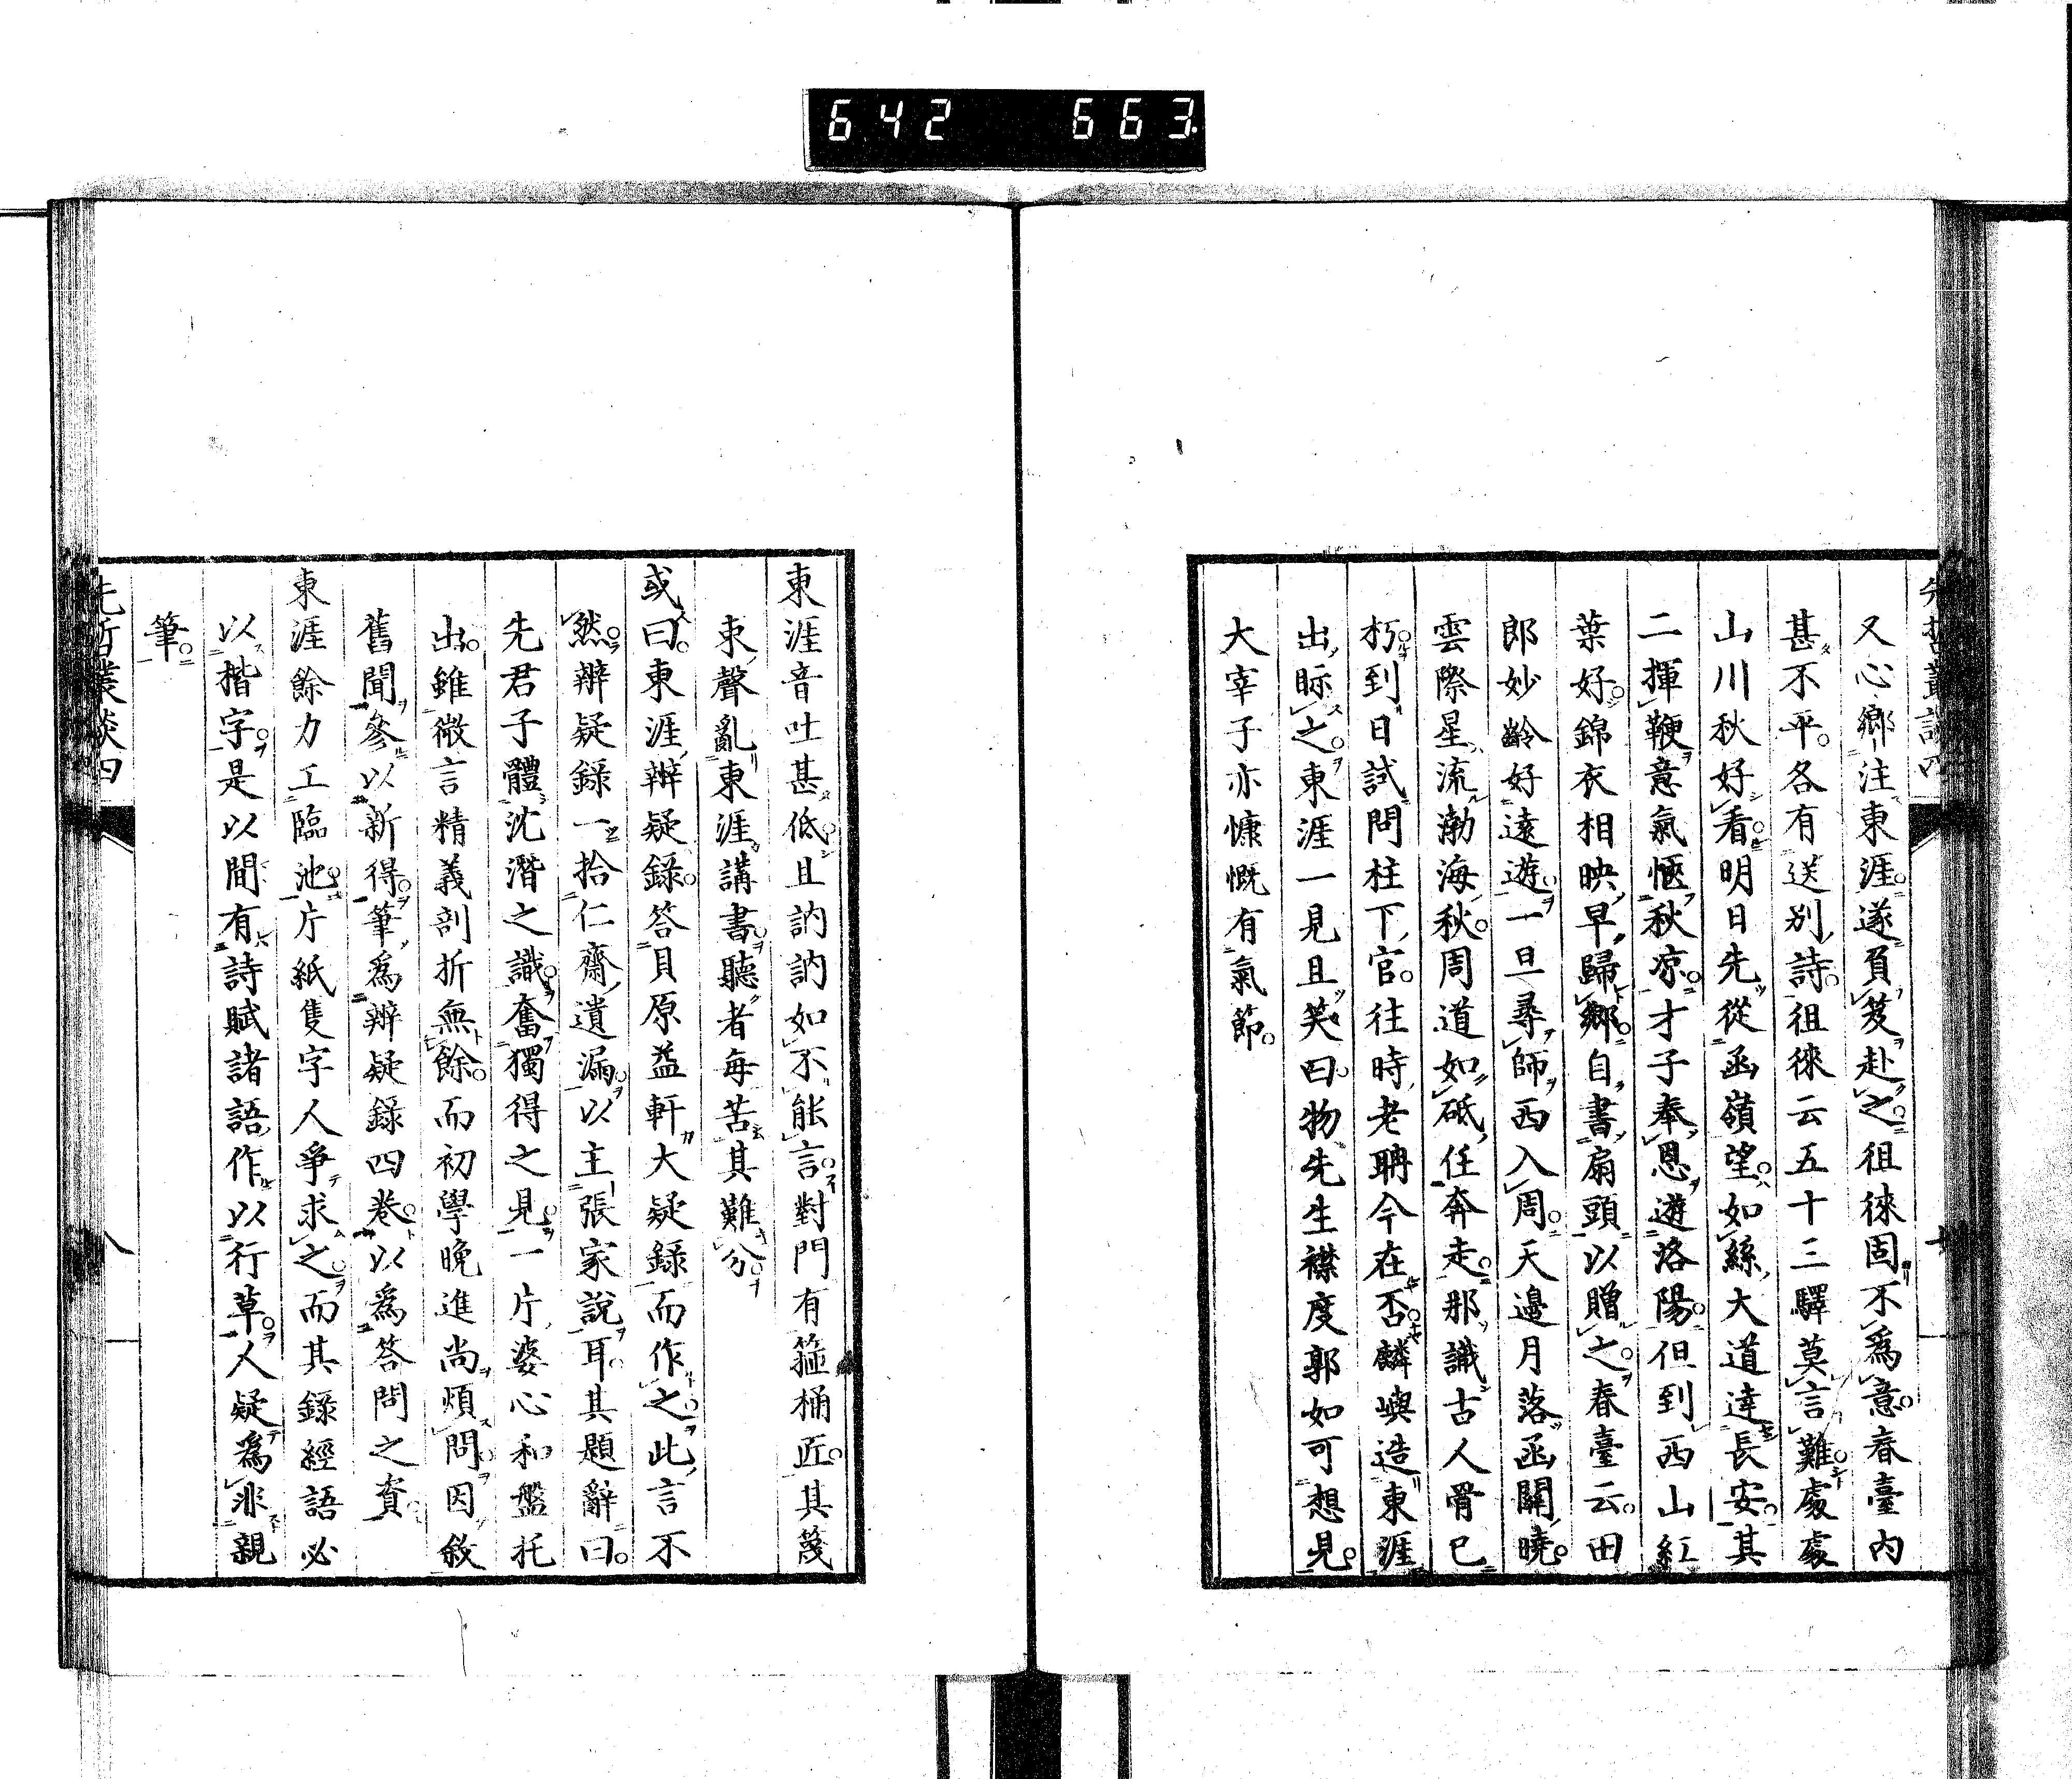 642 663.
又心鄕注東涯遂負笈赴之徂徠固不爲意春臺內
甚不平各有送別詩徂徠云五十三驛莫言難處處
山川秋好看明日先從函嶺望如絲大道達長安其
二揮鞭意氣愜秋凉才子奉恩遊洛陽但到西山紅
葉好錦衣相映早歸鄕自書扇頭以贈之春臺云田
郎妙齡好遠遊一旦尋師西入周天邊月落函關曉
雲際星流渤海秋周道如砥任奔走那識古人骨已
朽到日試問柱下官往時老聃今在否麟嶼造東涯
出眎之東涯一見且笑曰物先生襟度郭如可想見
大宰子亦慷慨有氣節
東涯音吐甚低且訥訥如不能言對門有箍桶匠其篾
束聲亂東涯講書聽者每苦其難分
或曰東涯辨疑錄答貝原益軒大疑錄而作之此言不
然辨疑錄一拾仁齋遺漏以主張家說耳其題辭曰
先君子體沈潛之識奮獨得之見一片婆心和盤托
出雖微言精義剖折無餘而初學晚進尚煩問因敘
舊聞參以新得筆爲辨疑錄四卷以爲答問之資
東涯餘力工臨池片紙隻字人爭求之而其錄經語必
以楷字是以間有詩賦諸語作以行草人疑爲非親
筆
先哲叢談四
八